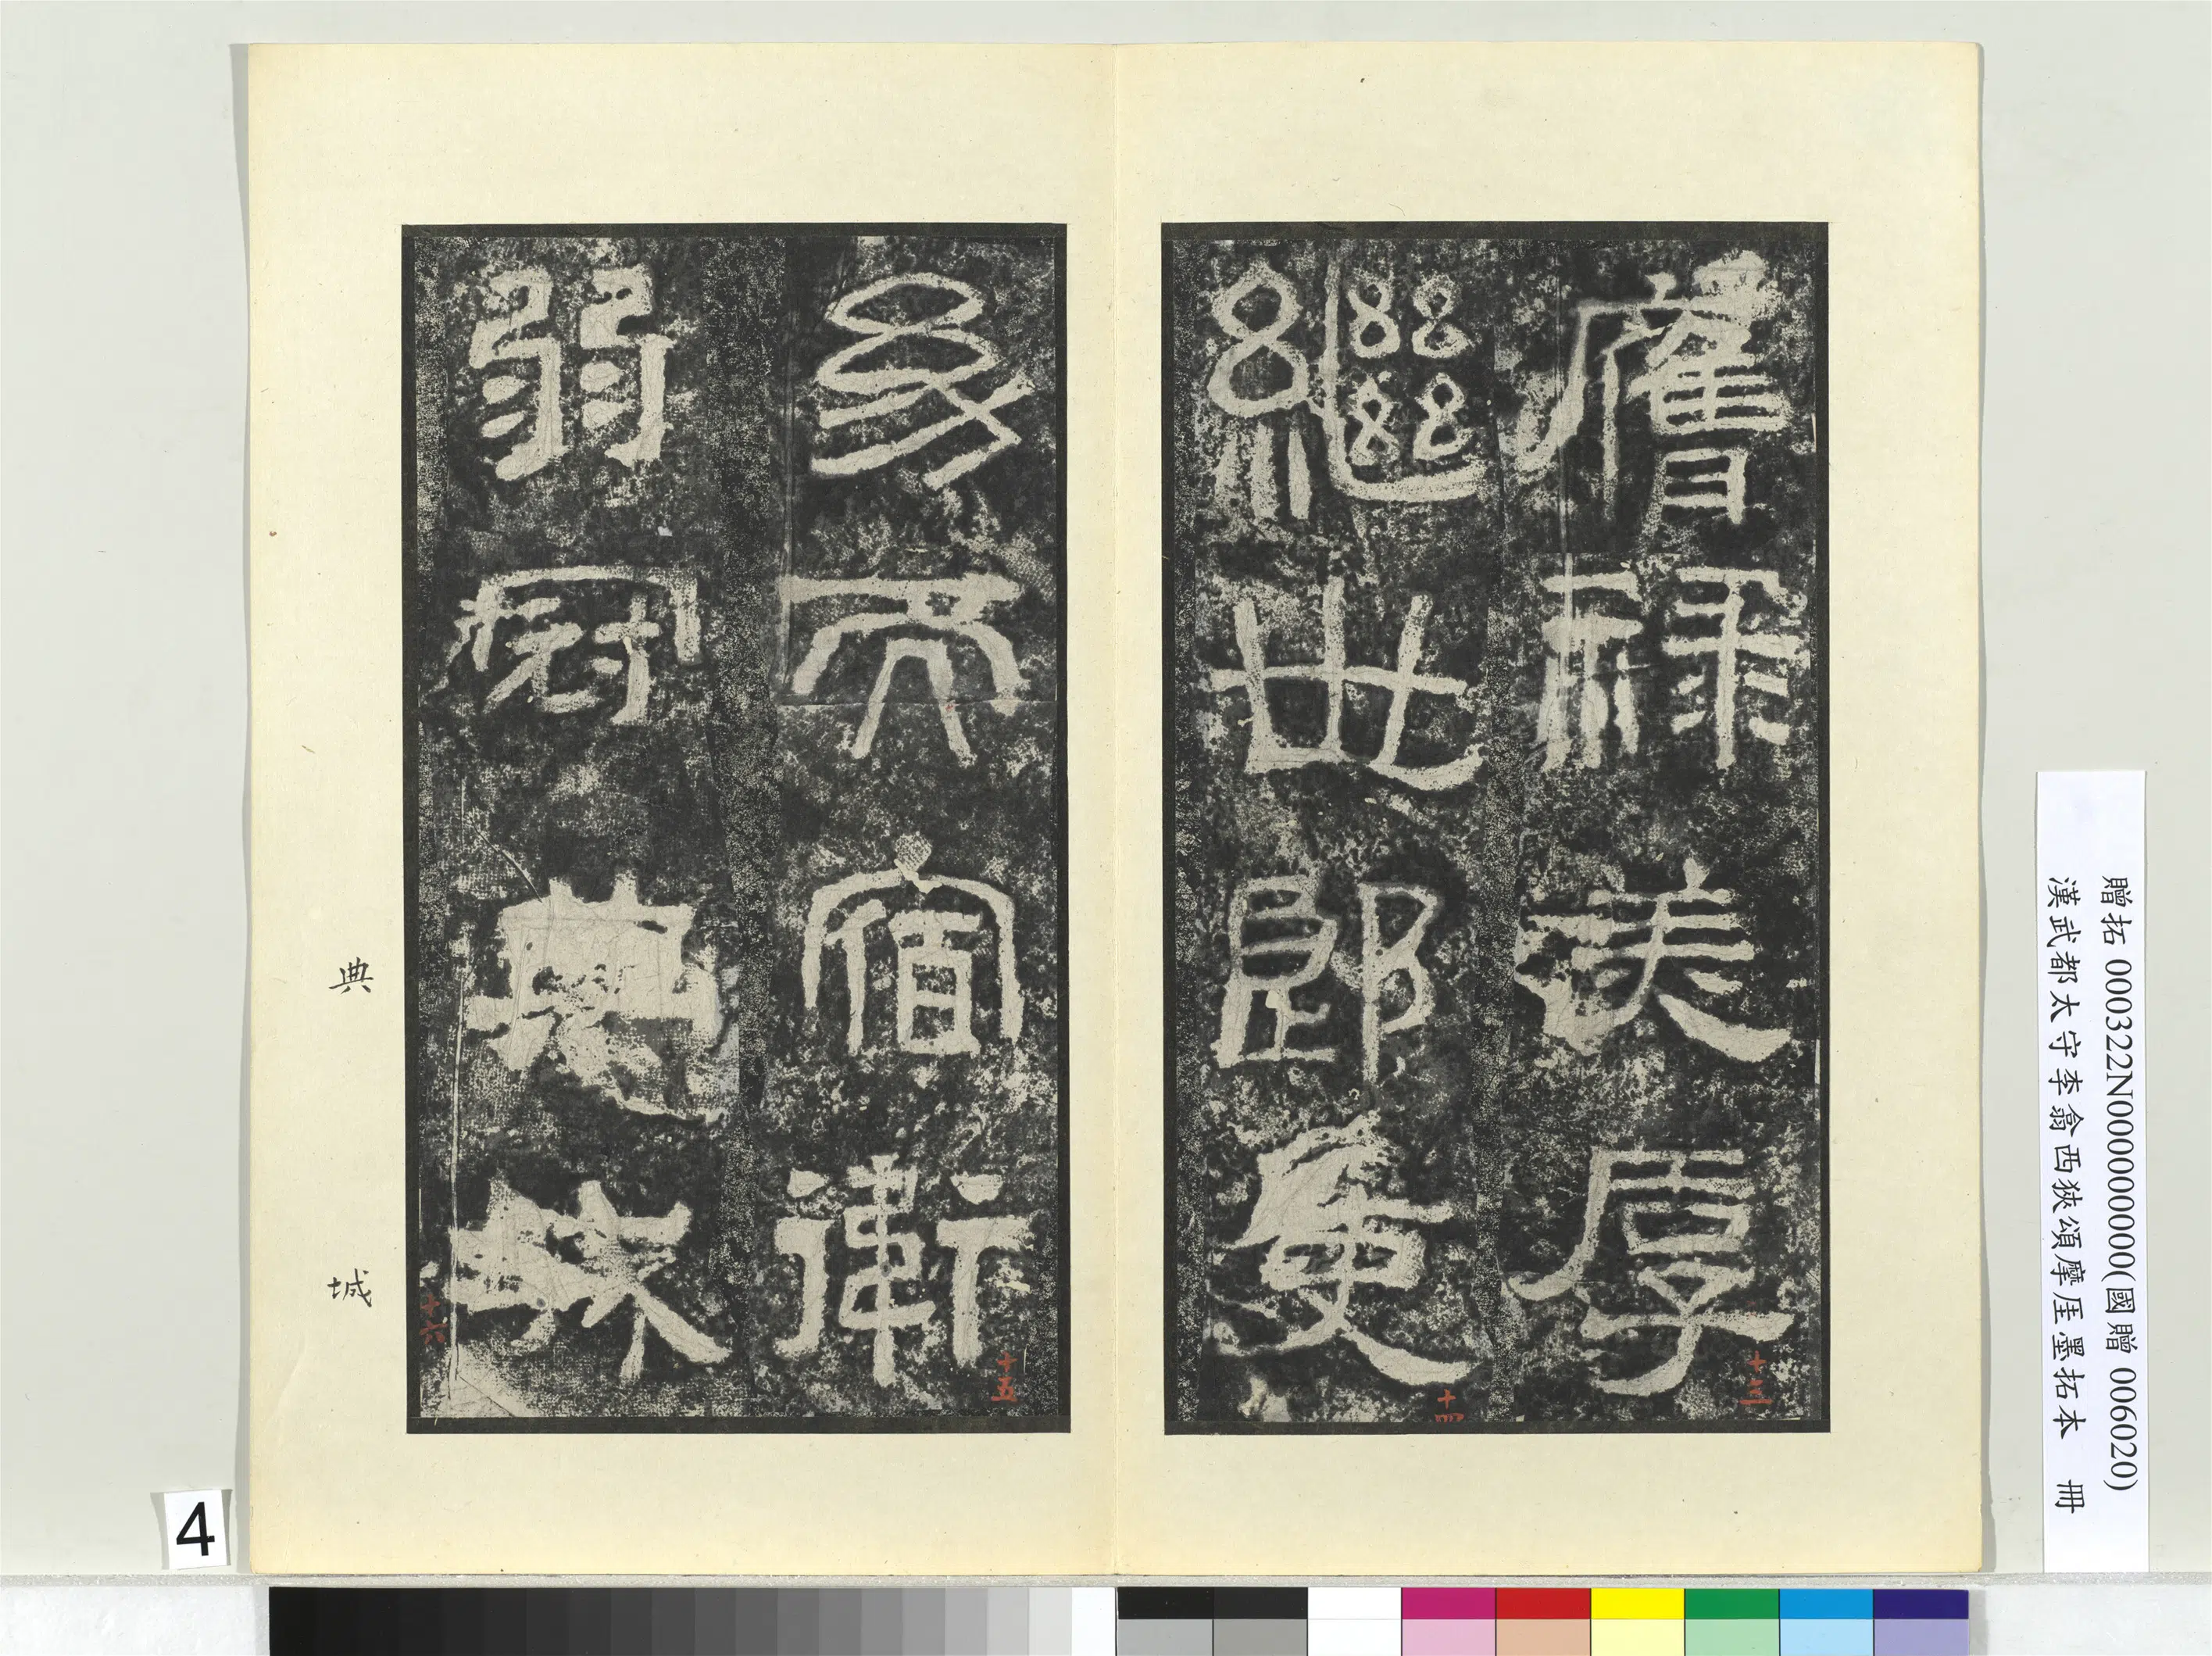 膺祿美厚
十三
繼世郎吏
十四
幼而宿衛
十五
弱冠典城
十六
典
城
贈拓 000322N000000000(國贈 006020)
漢武都太守李翕西狹頌摩厓墨拓本 冊
4